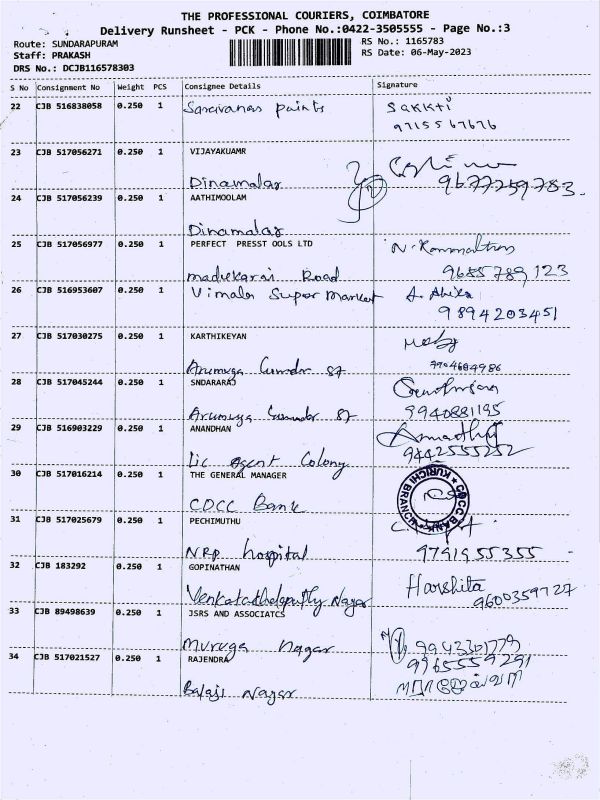 THE PROFESSIONAL COURIERS, COIMBATORE
Delivery Runsheet - PCK - Phone No.:0422-3505555 - Page No.:3
Route: SUNDARAPURAM RS No.: 1165783
Staff: PRAKASH RS Date: 06-May-2023
DRS No.: DCJB116578303
S No Consignment No Weight PCS Consignee Details Signature
22 CJB 516838058 0.250 1 Saravanas paints Sakkti
9715567676
23 CJB 517056271 0.250 1 VIJAYAKUAMR
Dinamalar 9677259783.
24 CJB 517056239 0.250 1 AATHIMOOLAM
Dinamalar
25 CJB 517056977 0.250 1 PERFECT PRESST OOLS LTD
madukarai Road 9685789123
26 CJB 516953607 0.250 1 Vimala Super Market
9894203451
27 CJB 517030275 0.250 1 KARTHIKEYAN
Arumuga Gounder St 7904604986
28 CJB 517045244 0.250 1 SNDARARAJ
Arumuga Gounder St 9940881195
29 CJB 516903229 0.250 1 ANANDHAN
Lic agent Colony 9442555252
30 CJB 517016214 0.250 1 THE GENERAL MANAGER
CDCC Bank CDCC BANK KURICHI BRANCH
31 CJB 517025679 0.250 1 PECHIMUTHU
NRP hospital 9791955355
32 CJB 183292 0.250 1 GOPINATHAN Harshita
Nagar 9600359727
33 CJB 89498639 0.250 1 JSRS AND ASSOCIATCS
Muruga Nagar 9943301779
34 CJB 517021527 0.250 1 RAJENDRA 9965559291
Balaji Nagar